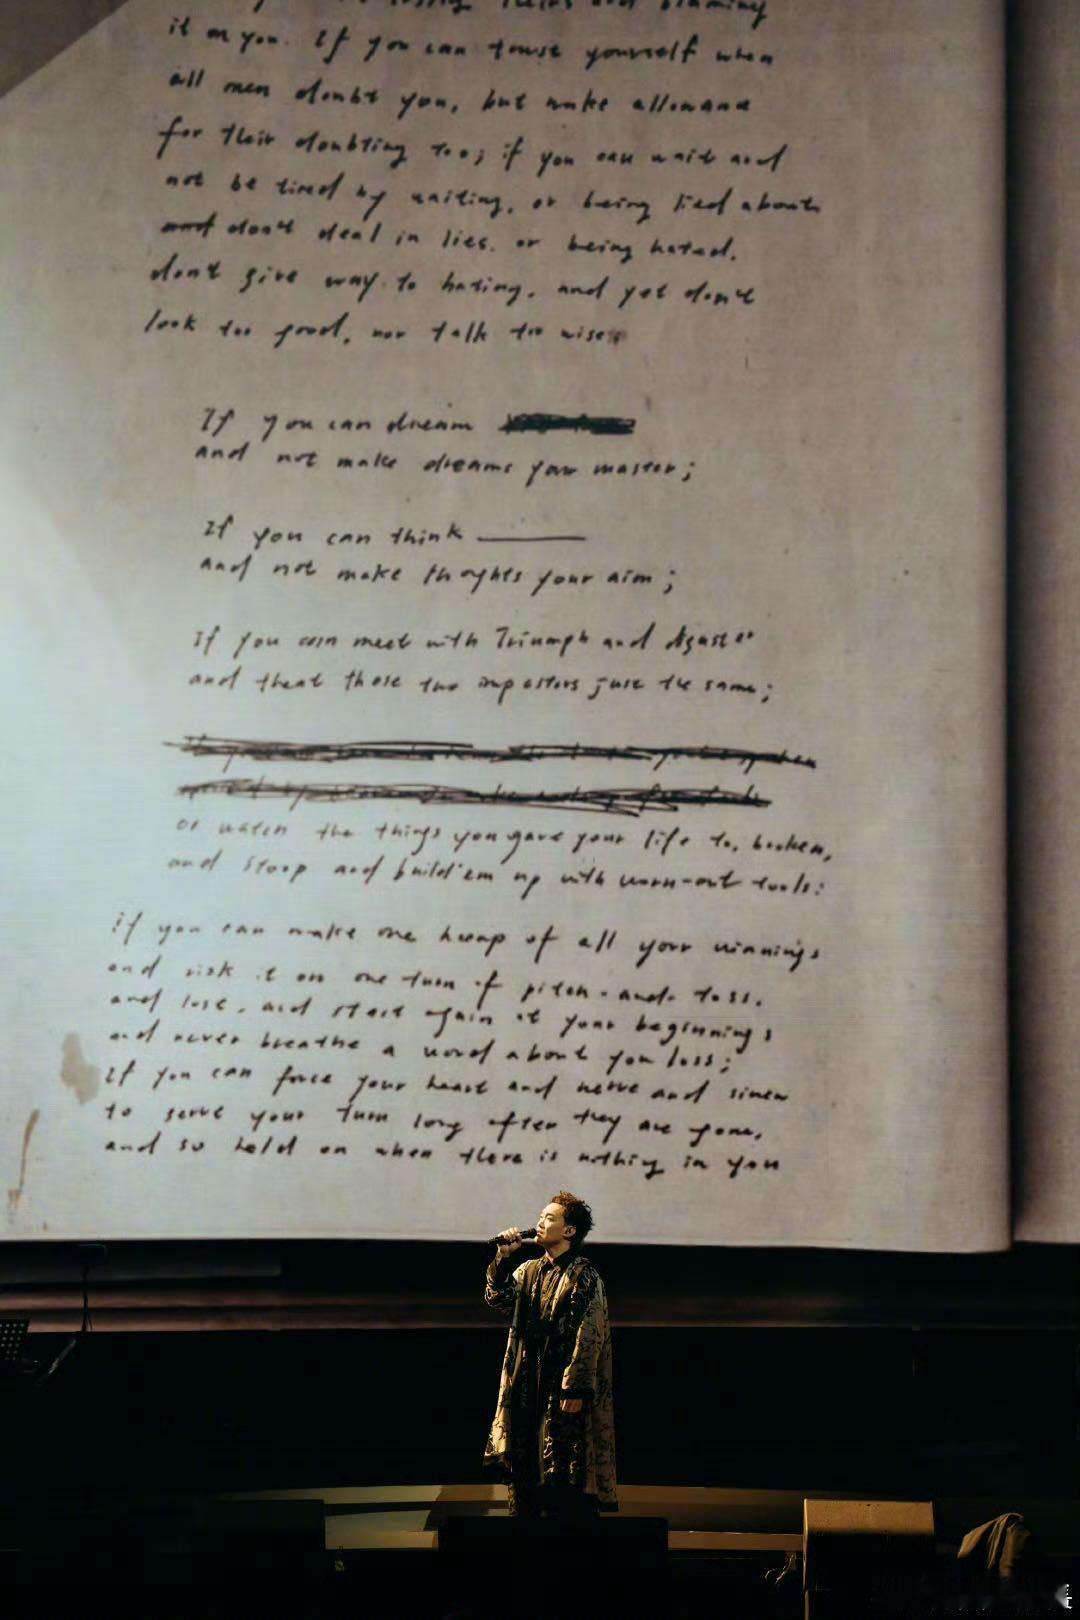 losing theirs and blaming
it on you. If you can trust yourself when
all men doubt you, but make allowance
for their doubting too; if you can wait and
not be tired by waiting, or being lied about
and don't deal in lies. or being hated.
don't give way to hating, and yet don't
look too good, nor talk too wise:
If you can dream
and not make dreams your master;
If you can think
and not make thoghts your aim;
If you can meet with Triumph and
and theat those two impostors just the same;
or watch the things you gave your life to, broken,
and stoop and build'em up with worn-out tools:
if you can make one heap of all your winnings
and risk it on one turn of pitch-and-toss.
and lose, and start again at your beginnings
and never breathe a word about you loss;
If you can force your heart and nerve and sinew
to serve your turn long after they are gone,
and so hold on when there is nothing in you